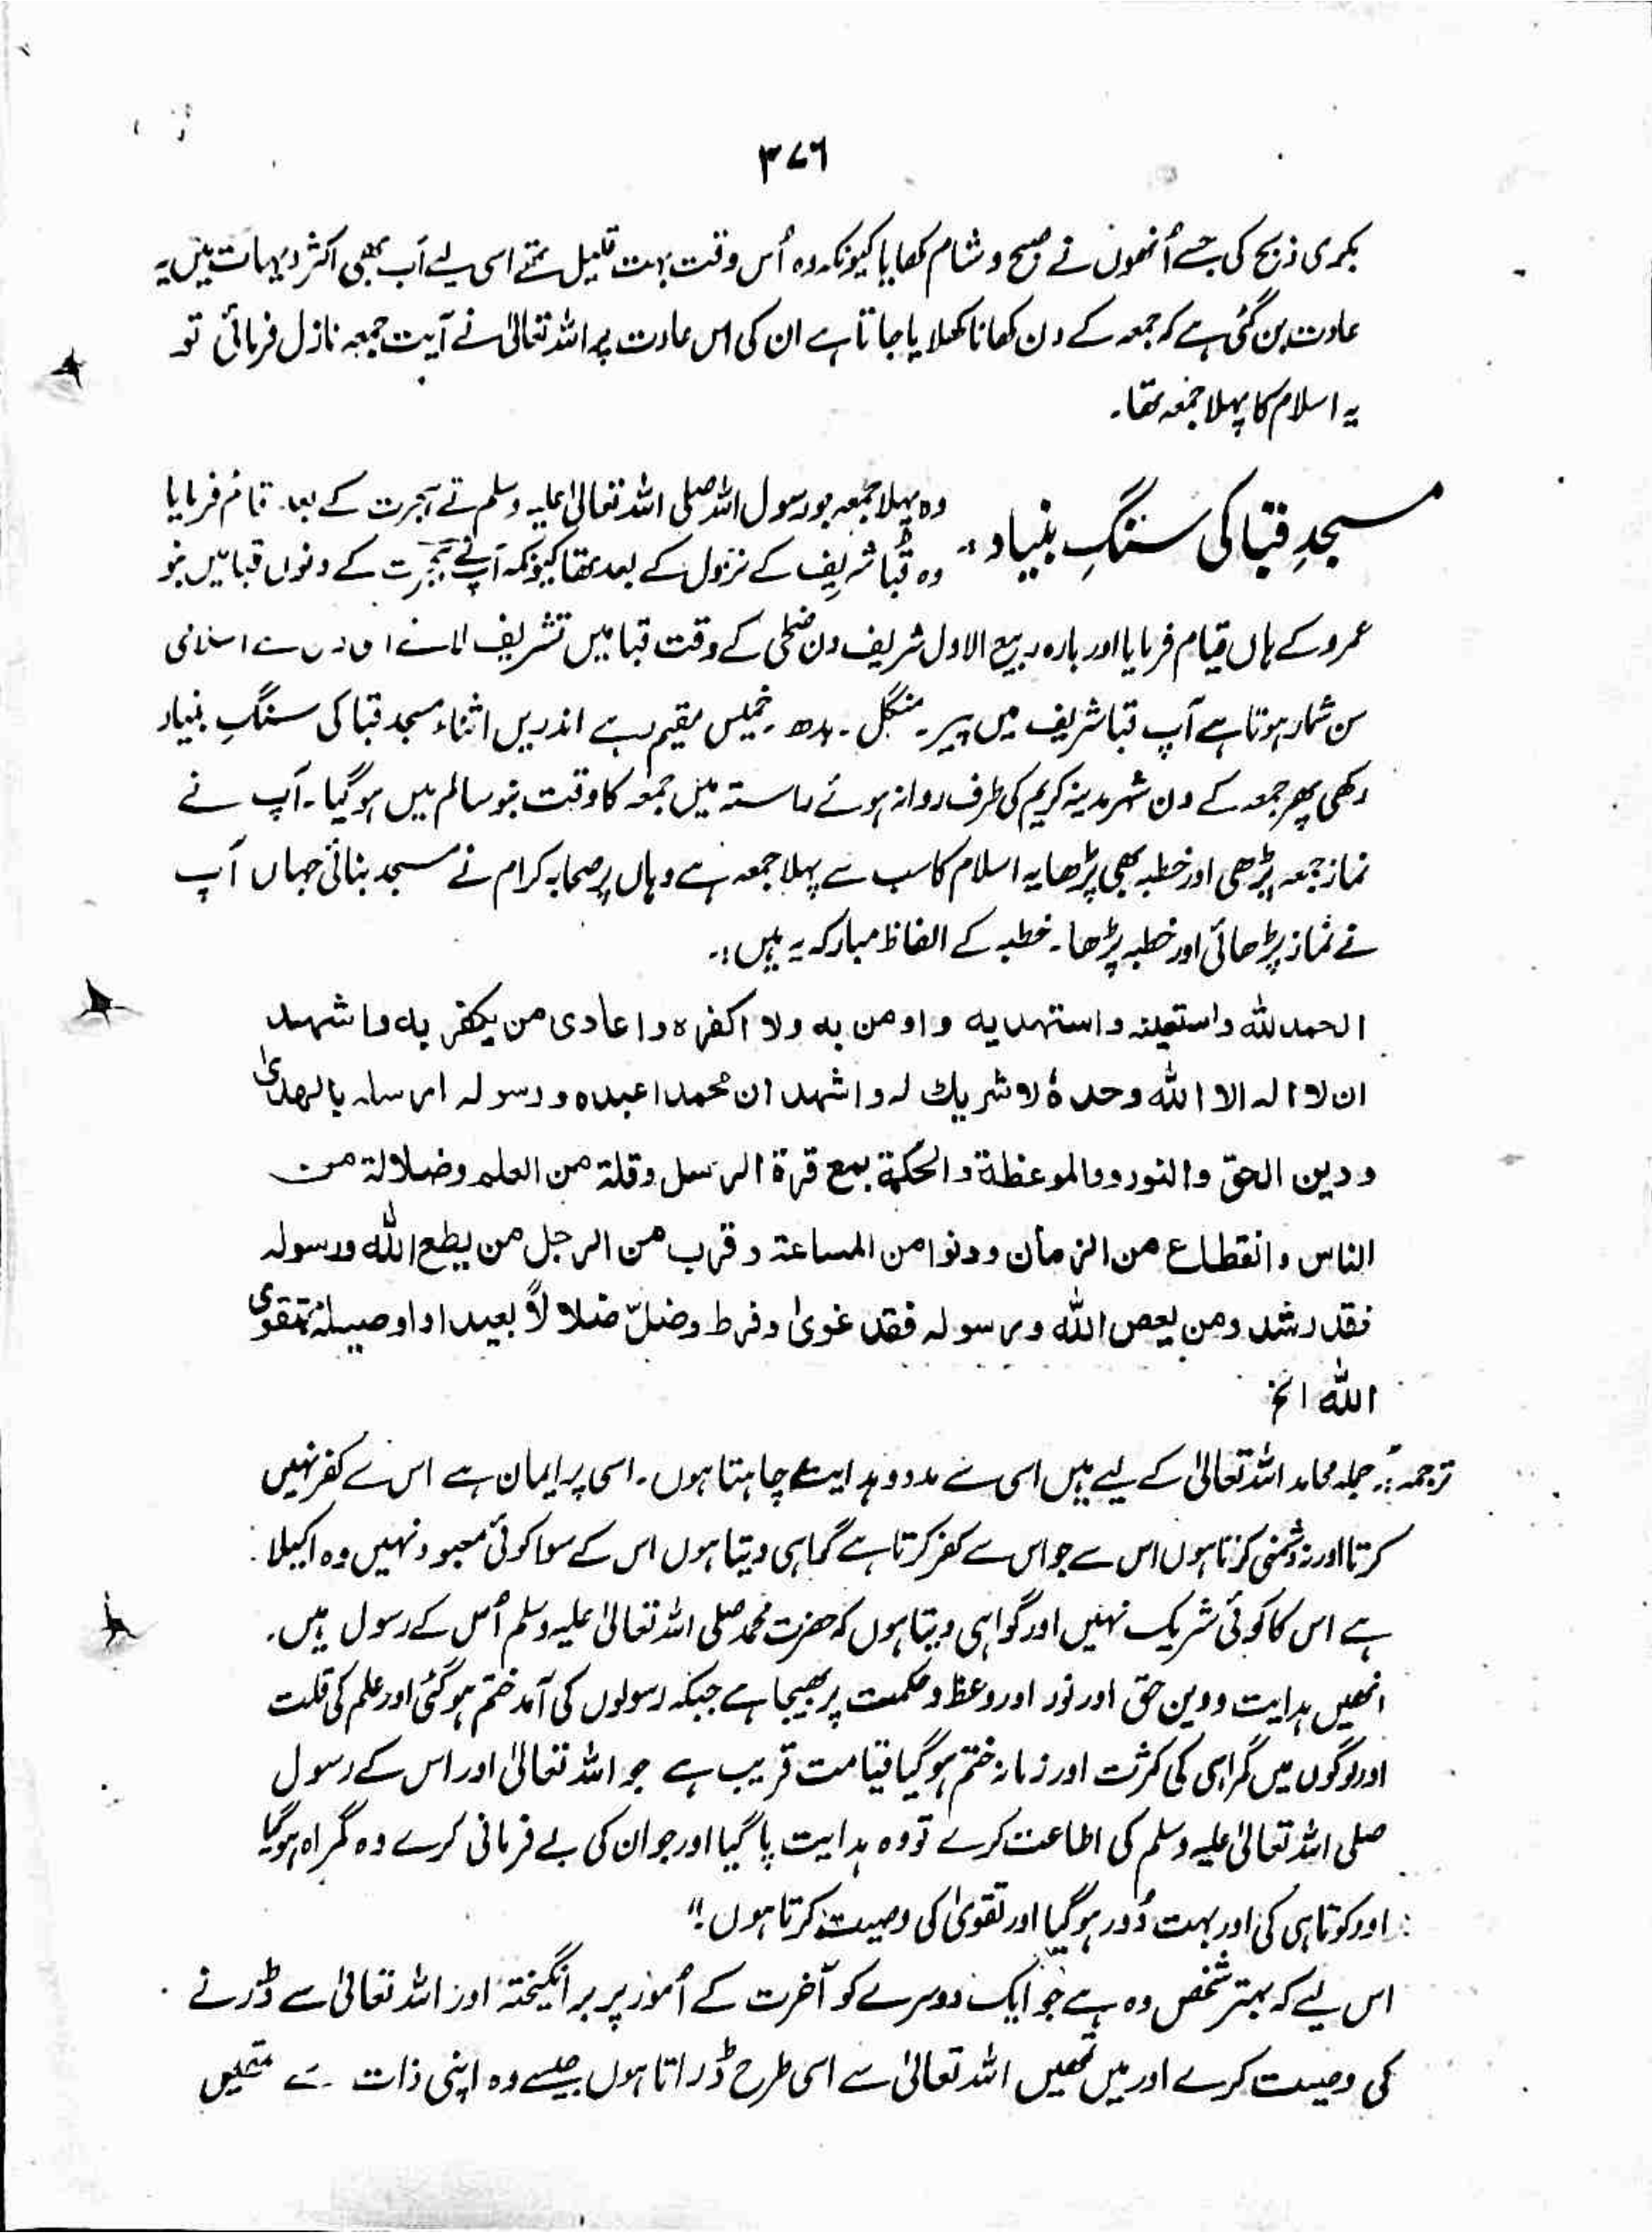 ۳۷۶
بکری ذبح کی جسے اُنھوں نے صبح و شام کھایا کیونکہ وہ اُس وقت بہت قلیل تھے اسی لیے اَب بھی اکثر دیہات میں یہ
عادت بن گئی ہے کہ جمعہ کے دن کھانا کھلایا جاتا ہے ان کی اس عادت پر اللہ تعالیٰ نے آیت جمعہ نازل فرمائی تو
یہ اسلام کا پہلا جمعہ تھا۔
مسجدِ قبا کی سنگِ بنیاد :۔
وہ پہلا جمعہ جو رسول اللہ صلی اللہ تعالیٰ علیہ وسلم نے ہجرت کے بعد قائم فرمایا
وہ قُبا شریف کے نزول کے بعد تھا کیونکہ آپ نے ہجرت کے دنوں قبا میں بنو
عمرو کے ہاں قیام فرمایا اور بارہ ربیع الاول شریف دن ضحٰی کے وقت قبا میں تشریف لائے اسی دن سے اسلامی
سن شمار ہوتا ہے آپ قبا شریف میں پیر۔ منگل۔ بدھ۔ خمیس مقیم رہے اندریں اثناء مسجد قبا کی سنگِ بنیاد
رکھی پھر جمعہ کے دن شہر مدینہ کریم کی طرف روانہ ہوئے راستہ میں جمعہ کا وقت بنو سالم میں ہو گیا۔ آپ نے
نماز جمعہ پڑھی اور خطبہ بھی پڑھا یہ اسلام کا سب سے پہلا جمعہ ہے وہاں پر صحابہ کرام نے مسجد بنائی جہاں آپ
نے نماز پڑھائی اور خطبہ پڑھا۔ خطبہ کے الفاظ مبارکہ یہ ہیں :۔
الحمد للہ واستعینہ واستہدیہ واومن بہ ولا اکفرہ واعادی من یکفر بہ واشہد
ان لا الہ الا اللہ وحدہٗ لا شریک لہ واشہد ان محمدا عبدہ ورسولہ ارسلہ بالھدیٰ
ودین الحق والنور والموعظة والحکمة قرة الرسل وقلة من العلم وضلالة من
الناس وانقطاع من الزمان ودنوا من الساعة وقرب من الرجل من یطع اللہ ورسولہ
فقد رشد ومن یعص اللہ ورسولہ فقد غویٰ وفرط وضلّ ضلالاً بعیدا بتقوی
اللہ الخ
ترجمہ :۔ جملہ محامد اللہ تعالیٰ کے لیے ہیں اسی سے مدد و ہدایت چاہتا ہوں۔ اسی پر ایمان ہے اس سے کفر نہیں
کرتا اور نہ دشمنی کرتا ہوں اس سے جو اس سے کفر کرتا ہے گواہی دیتا ہوں اس کے سوا کوئی معبود نہیں وہ اکیلا
ہے اس کا کوئی شریک نہیں اور گواہی دیتا ہوں کہ حضرت محمد صلی اللہ تعالیٰ علیہ وسلم اُس کے رسول ہیں۔
انھیں ہدایت و دین حق اور نور اور وعظ و حکمت پر بھیجا ہے جبکہ رسولوں کی آمد ختم ہو گئی اور علم کی قلت
اور لوگوں میں گمراہی کی کثرت اور زمانہ ختم ہو گیا قیامت قریب ہے جو اللہ تعالیٰ اور اس کے رسول
صلی اللہ تعالیٰ علیہ وسلم کی اطاعت کرے تو وہ ہدایت پا گیا اور جو ان کی بے فرمانی کرے وہ گمراہ ہو گیا
اور کوتاہی کی اور بہت دُور ہو گیا اور تقویٰ کی وصیت کرتا ہوں۔"
اس لیے کہ بہتر شخص وہ ہے جو ایک دوسرے کو آخرت کے اُمور پر برانگیختہ اور اللہ تعالیٰ سے ڈرنے
کی وصیت کرے اور میں تمھیں اللہ تعالیٰ سے اسی طرح ڈراتا ہوں جیسے وہ اپنی ذات سے تمھیں